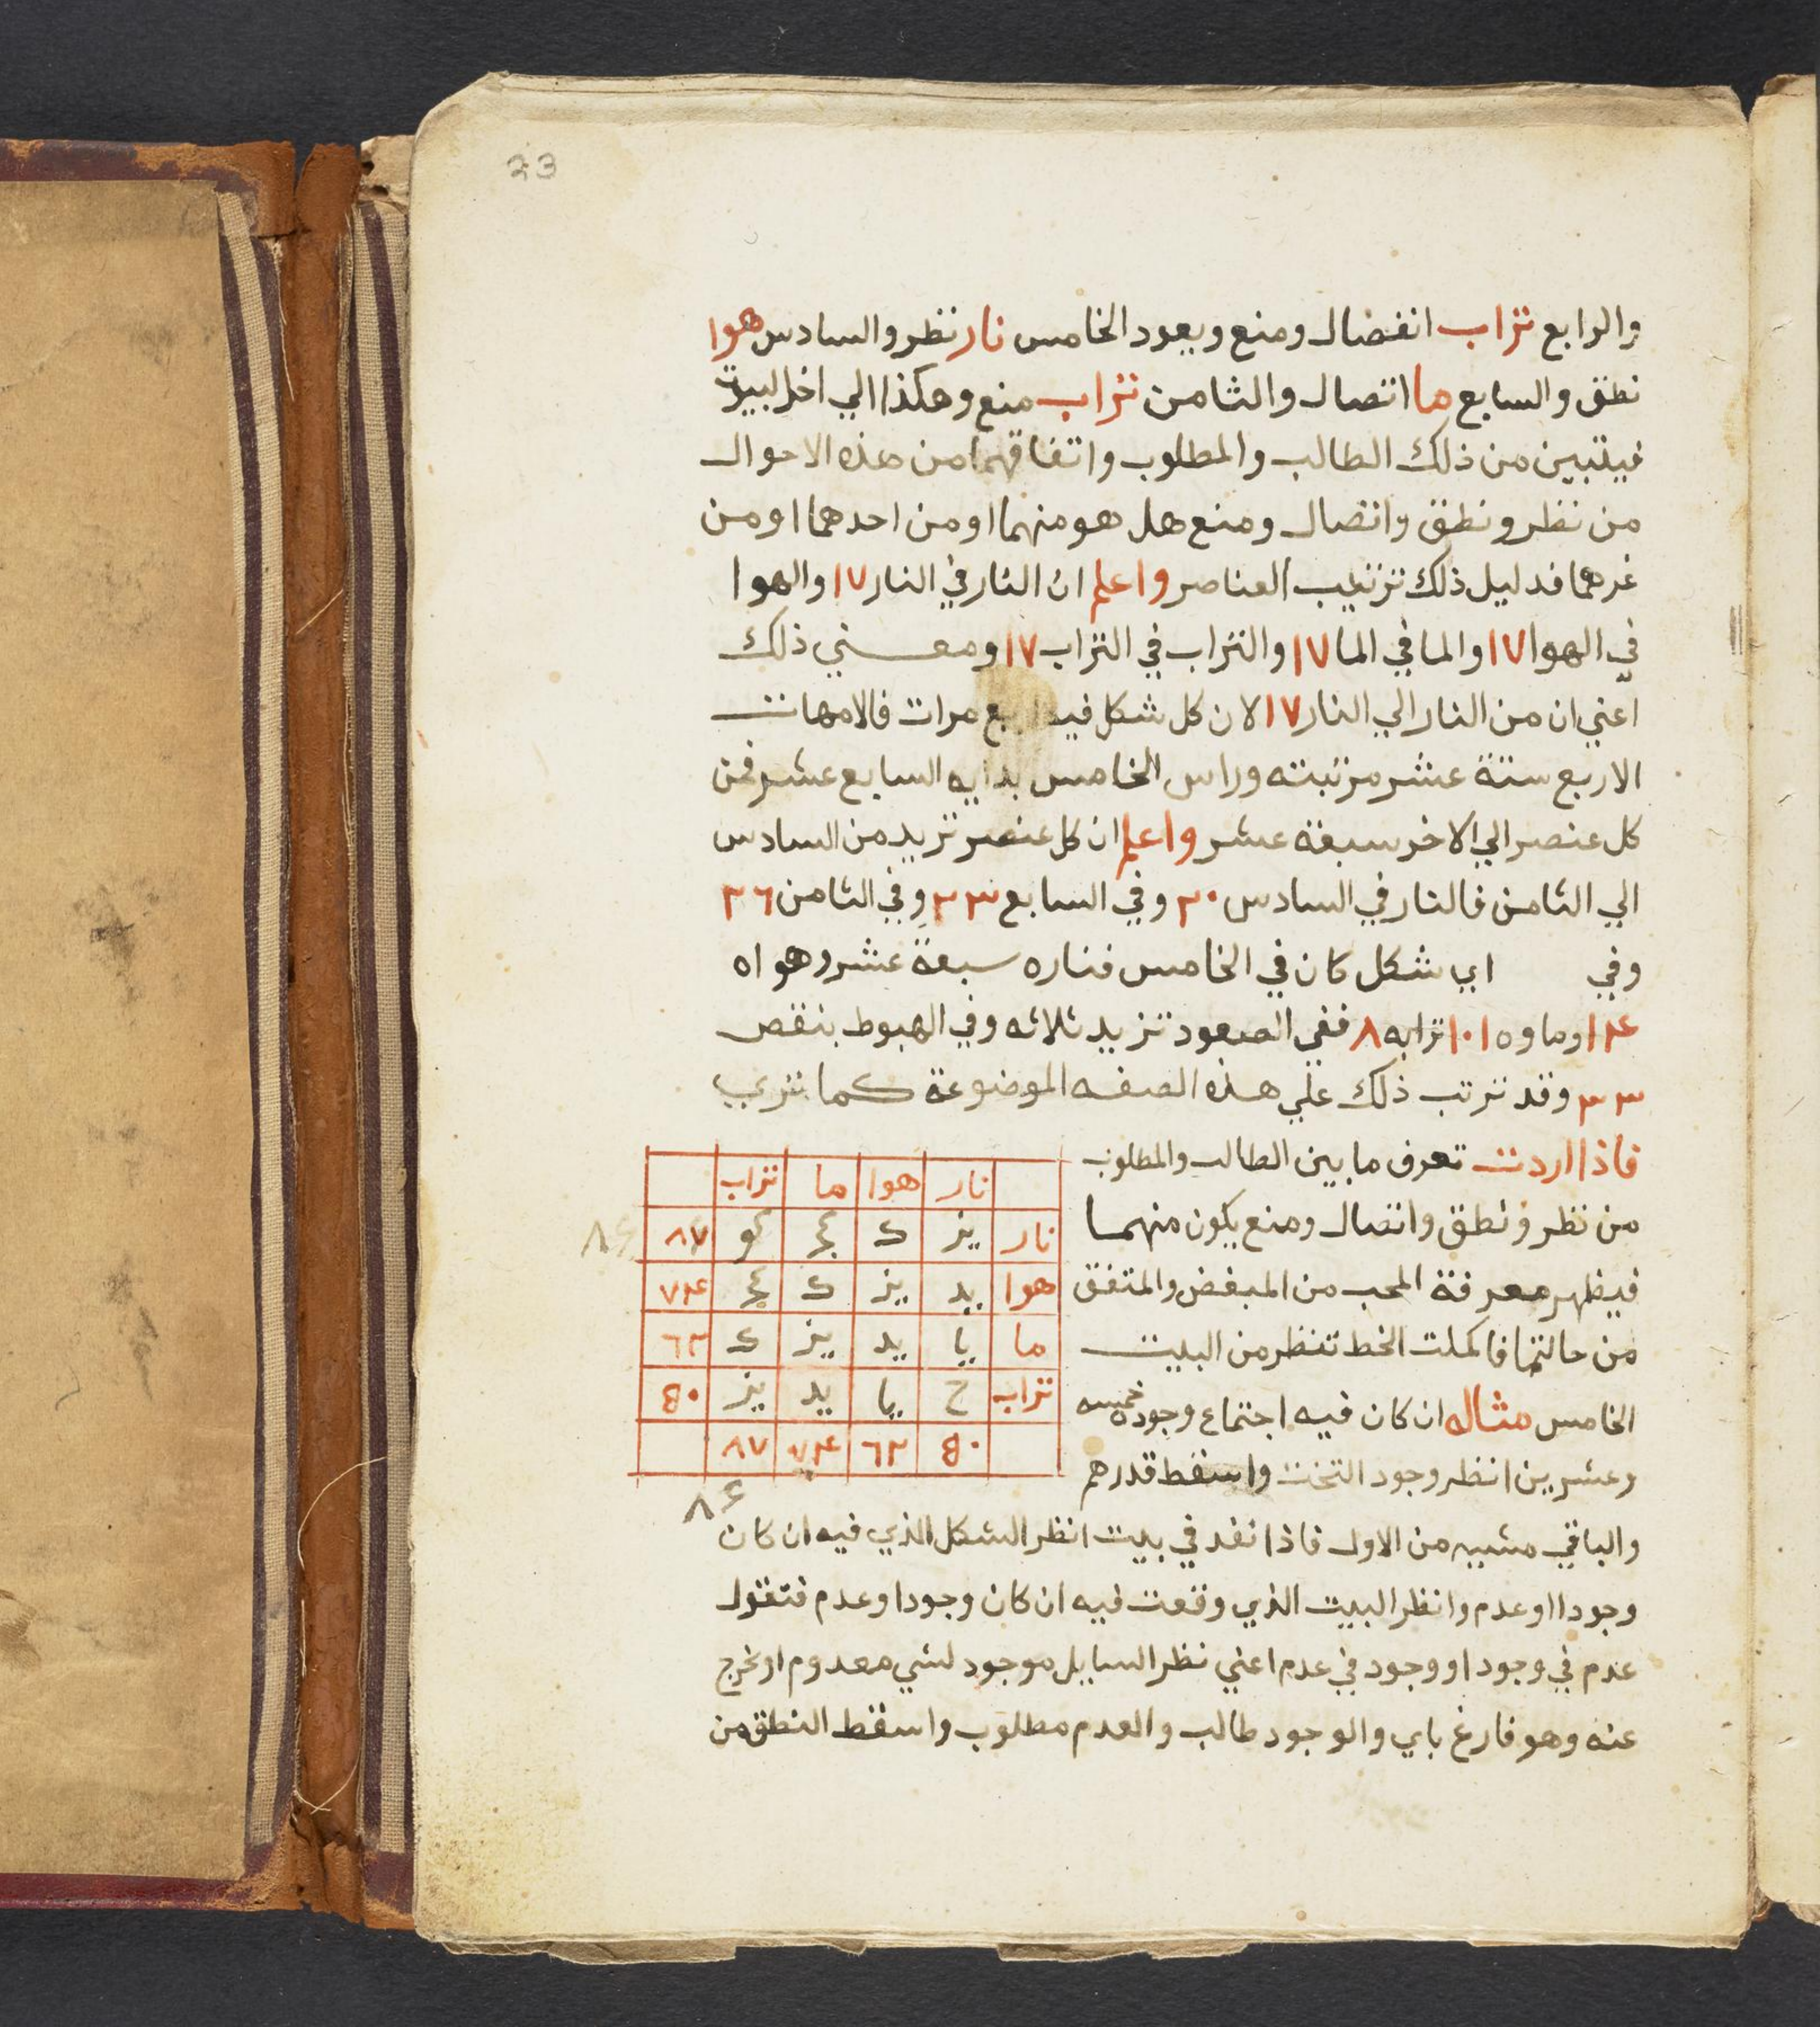 23
والرابع تراب انفصال ومنع ويعود الخامس نار نظر والسادس هوا
نطق والسابع ما اتصال والثامن تراب منع وهكذا الي اخر البيوت
فيتبين من ذلك الطالب والمطلوب واتفاقهما من هذه الاحوال
من نظر ونطق واتصال ومنع هل هو منهما او من احدهما او من
غرهما فدليل ذلك ترتيب العناصر واعلم ان النار في النار ١٧ والهوا
في الهوا ١٧ والما في الما ١٧ والتراب في التراب ١٧ ومعني ذلك
اعني ان من النار الي النار ١٧ لان كل شكل فيه اربع مرات فالامهات
الاربع ستة عشر مرتبته وراس الخامس بدايه السابع عشر فمن
كل عنصر الي الاخر سبعة عشر واعلم ان كل عنصر تزيد من السادس
الي الثامن فالنار في السادس ٢٠ وفي السابع ٢٣ وفي الثامن ٢٦
وفي اي شكل كان في الخامس فناره سبعة عشر وهواه
١٤ وماوه ١٠١ ترابه ٨ ففي الصعود تزيد ثلاثه وفي الهبوط بنقص
٣ ٣ وقد ترتب ذلك علي هذه الصفه الموضوعة كما تري
فاذا اردت تعرف ما بين الطالب والمطلوب
من نظر ونطق واتصال ومنع يكون منهما
فيظهر معرفة المحب من المبغض والمتفق
من حالتهما فاكملت الخط تنظر من البيت
الخامس مثاله ان كان فيه اجتماع وجوده خمسه
وعشرين انظر وجود التخت واسقط قدرهم
والباقي مشيه من الاول فاذا نفد في بيت انظر الشكل الذي فيه ان كان
وجودا او عدم وانظر البيت الذي وقعت فيه ان كان وجودا وعدم فتقول
عدم في وجود او وجود في عدم اعني نظر السايل موجود لشي معدوم او نخرج
عنه وهو فارغ باي والوجود طالب والعدم مطلوب واسقط النطق من
نار هوا ما تراب
نار يز ك كج كو ٨٧ ٨٤
هوا يد يز ك كج ٧٤
ما يا يد يز ك ٦٢
تراب ح يا يد يز ٥٠
٥٠ ٦٢ ٧٤ ٨٧
٨٤